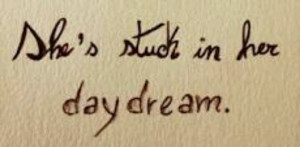 She's stuck in her
daydream.